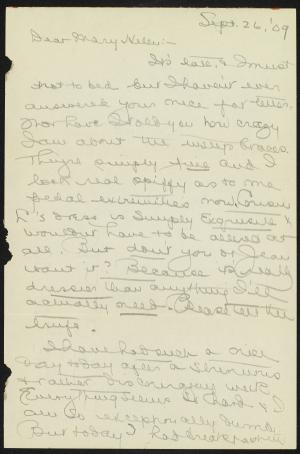 Sept. 26, '09
Dear Mary Helen:-
It's late, & I must
trot to bed but I haven't ever
answered your nice fat letter.
Nor have I told you how crazy
I am about the
They're simply fine and I
look real spiffy as to me
pedal extremities now. Cousin
L's dress is simply exquisite &
wouldn't have to be altered at
all. But don't you or Jean
want it? Because it's really
dressier than anything I'll
actually need. Please tell the
truth.
I have had such a nice
day today after a strenuous
& rather discouraging week.
Everything seems so hard & I
am so exceptionally dumb.
But today I had breakfast in